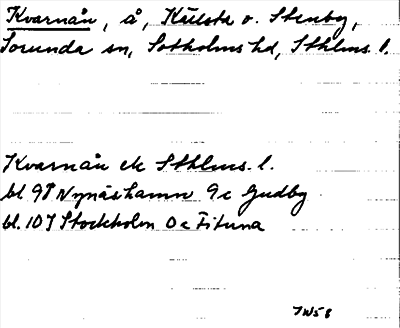 Kvarnån, å, Külsta o. Stenby,
Sorunda sn, Sotholms hd, Sthlms. l.
Kvarnån ek Sthlms. l.
bl 9I Nynäshamn 9c Gudby
bl. 10I Stockholm 0c Fituna
JW58